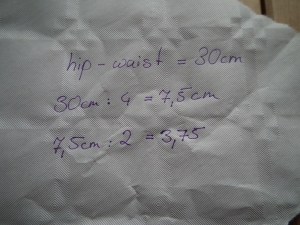 hip - waist = 30cm
30cm : 4 = 7,5cm
7,5cm : 2 = 3,75